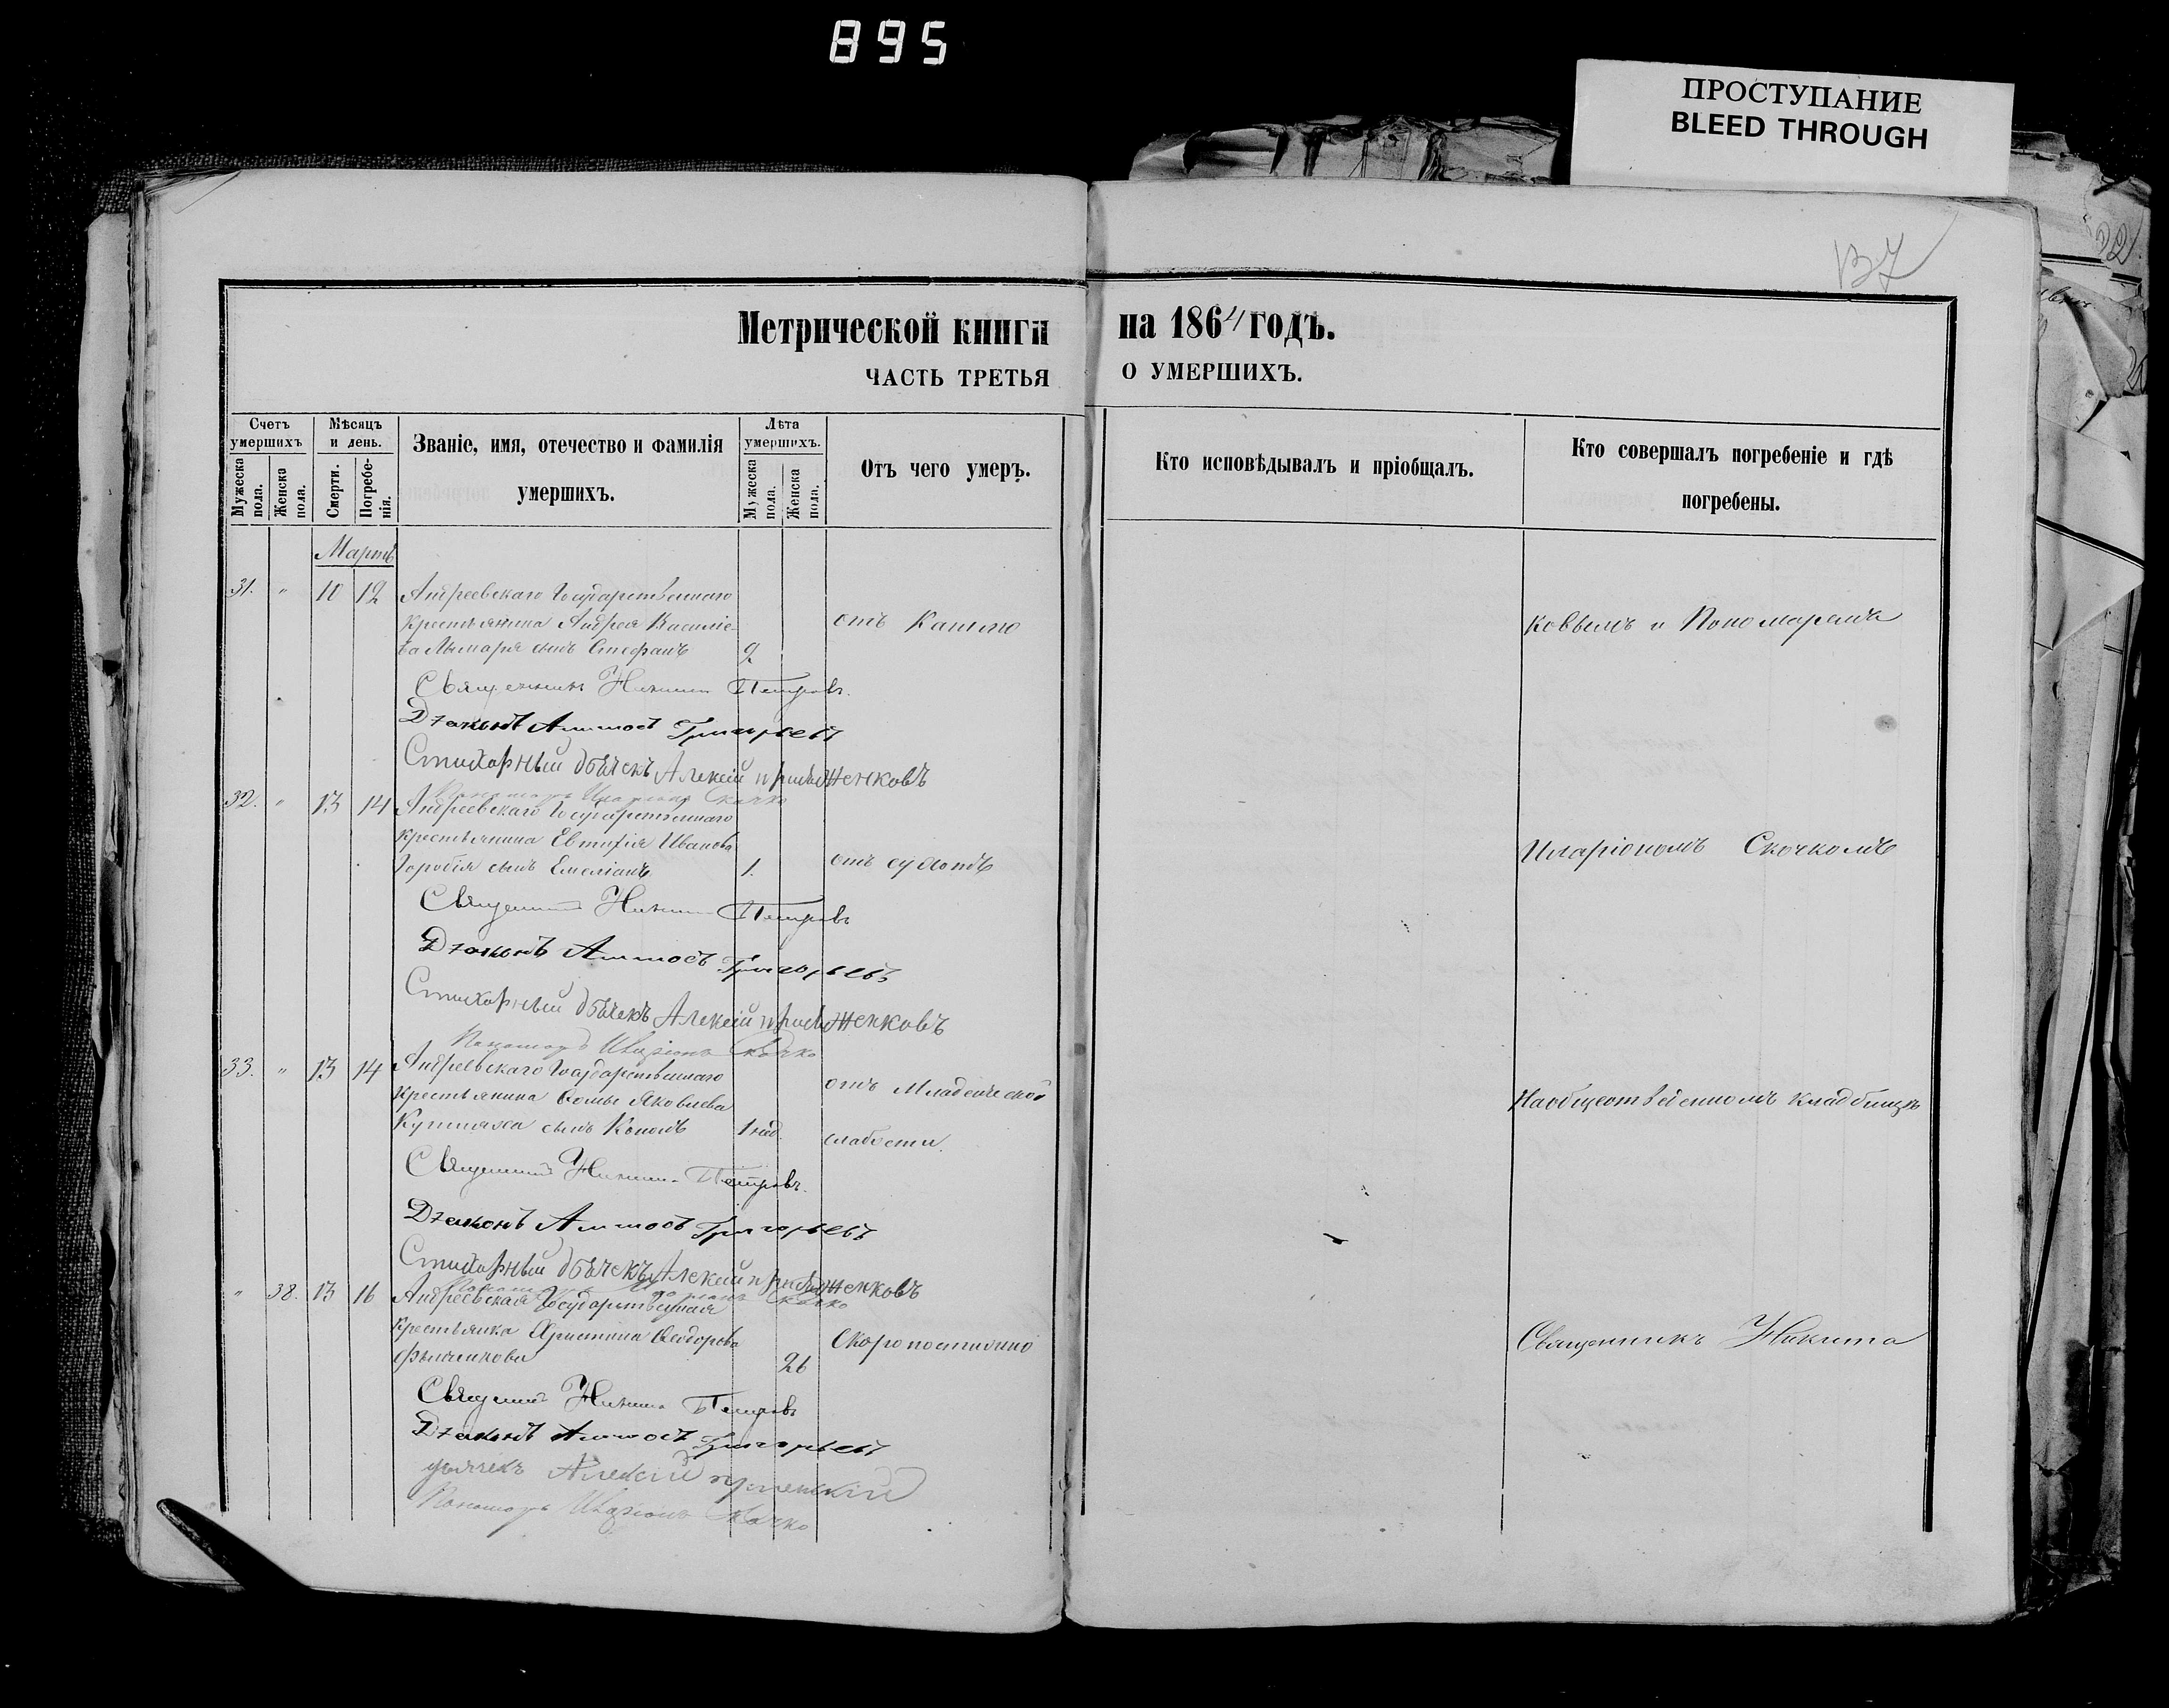 895
ПРОСТУПАНИЕ
BLEED THROUGH
137
Метрической книги на 1864 годъ.
ЧАСТЬ ТРЕТЬЯ О УМЕРШИХЪ.
Счетъ умершихъ
Мужеска пола.
Женска пола.
Мѣсяцъ и день.
Смерти.
Погребенія.
Званіе, имя, отечество и фамилія
умершихъ.
Лѣта умершихъ.
Мужеска пола.
Женска пола.
Отъ чего умеръ.
Кто исповѣдывалъ и пріобщалъ.
Кто совершалъ погребеніе и гдѣ
погребены.
Мартъ
31. " 10 12 Андреевскаго Государственнаго
крестьянина Андрея Василіе-
ва Лымаря сынъ Стефанъ 2 отъ Кашлю
Священникъ Никита Петровъ.
Діаконъ Аммосъ Григорьевъ
Стихарный дьячекъ Алексій
Пономарь Иларіонъ Скочко
Коввымъ и Пономаремъ
32. " 13 14 Андреевскаго Государственнаго
крестьянина Евтихія Иванова
сынъ Емеліанъ 1. отъ
Священникъ Никита Петровъ
Діаконъ Аммосъ Григорьевъ
Стихарный дьячекъ Алексій
Пономарь Иларіонъ Скочко
Иларіономъ Скочкомъ
33. " 13 14 Андреевскаго Государственнаго
крестьянина Ѳомы Яковлева
сынъ Кононъ 1 нед. отъ Младенческой
слабости.
Священникъ Никита Петровъ.
Діаконъ Аммосъ Григорьевъ
Стихарный дьячекъ Алексій
Пономарь Иларіонъ Скочко
На общественномъ кладбищѣ
" 38. 13 16 Андреевская Государственная
крестьянка Христина Ѳеодорова
26 Скоропостижно
Священникъ Никита Петровъ
Діаконъ Аммосъ Григорьевъ
дьячекъ Алексій
Пономарь Иларіонъ Скочко
Священникъ Никита